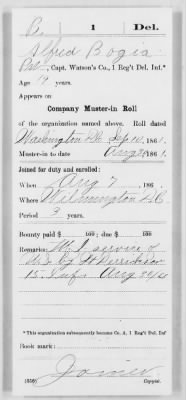 B. 1 Del.
Alfred Bogia
Pvt., Capt. Watson's Co., 1 Reg't Del. Inf.*
Age 19 years.
Appears on
Company Muster-in Roll
of the organization named above. Roll dated
Washington DC Sep 10, 1861.
Muster-in to date Aug 20, 1861.
Joined for duty and enrolled:
When Aug 7, 186
Where Wilmington
Period 3 years.
Bounty paid $ 100; due $ 100
Remarks: Md. I service of
U.S. by Lt
15. Inf. Aug 20/61
*This organization subsequently became Co. A, 1 Reg't Del. Inf
Book mark:
Joiner
(356) Copyist.